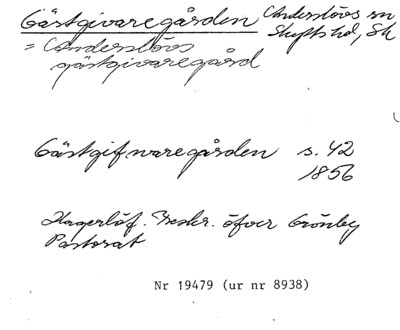 Gästgivaregården Anderslövs sn
Skytts hd, Sk
= Anderslövs
gästgivaregård
Gästgifvaregården s. 42
1856
Hagerlöf. Beskr. öfver Grönby
Pastorat
Nr 19479 (ur nr 8938)